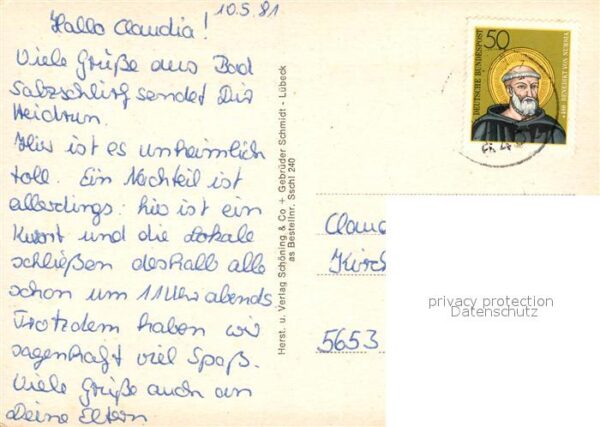 10.5.81
Hallo Claudia!
Viele Grüße aus Bad
Salzschlirf sendet Dir
Heidrun.
Hier ist es unheimlich
toll. Ein Nachteil ist
allerdings: hier ist ein
Kurort und die Lokale
schließen deshalb alle
schon um 11 Uhr abends
Trotzdem haben wir
sagenhaft viel Spaß.
Viele Grüße auch an
Deine Eltern.
Herst. u. Verlag Schöning & Co + Gebrüder Schmidt - Lübeck
as Bestellnr. Sschl 240
50
DEUTSCHE BUNDESPOST
BENEDIKT VON NURSIA
Claud
Kirch
5653
privacy protection
Datenschutz